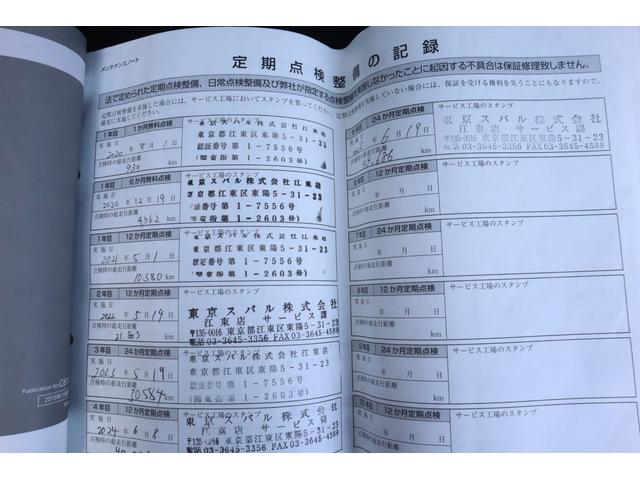 メンテナンスノート
定期点検整備の記録
法で定められた定期点検整備、日常点検整備及び弊社が指定する点検整備を実施しなかったことに起因する不具合は保証修理致しません。
1年目 1か月無料点検
サービス工場のスタンプ
実施日
2020年8月1日
点検時の総走行距離
930
東京都江東区東陽5-31-23
認証番号第1-7556号
(関東指第1-2603号)
1年目 6か月無料点検
サービス工場のスタンプ
実施日
2020年12月19日
点検時の総走行距離
4562 km
東京スバル株式会社江東店
東京都江東区東陽5-31-23
証番号第1-7556号
東指第1-2603号)
1年目 12か月定期点検
サービス工場のスタンプ
実施日
2021年5月1日
点検時の総走行距離
10380 km
東京都江東区東陽5-31-23
認証番号第1-7556号
(関東指第1-2603号)
2年目 12か月定期点検
サービス工場のスタンプ
実施日
2022年5月14日
点検時の総走行距離
21803 km
東京スバル株式会社
江東店 サービス課
〒135-0016 東京都江東区東陽5-31-23
電話03-3645-3356 FAX03-3645-4589
3年目 24か月定期点検
サービス工場のスタンプ
実施日
2023年5月14日
点検時の総走行距離
30584 km
東京スバル株式会社江東店
東京都江東区東陽5-31-23
認証番号第1-7556号
(関東指第1-2603号)
4年目 12か月定期点検
サービス工場のスタンプ
実施日
2024年6月8日
点検時の総走行距離
東京スバル株式会社
江東店 サービス課
24か月定期点検
サービス工場のスタンプ
6月19日
東京スバル株式会社
江東店 サービス課
〒135-0016 東京都江東区東陽5-31-23
電話03-3645-3356 FAX03-3645-4589
12か月定期点検
サービス工場のスタンプ
年 月 日
点検時の総走行距離
km
7年目 24か月定期点検
サービス工場のスタンプ
実施日
年 月 日
点検時の総走行距離
km
8年目 12か月定期点検
サービス工場のスタンプ
実施日
年 月 日
点検時の総走行距離
km
9年目 24か月定期点検
サービス工場のスタンプ
実施日
年 月 日
点検時の総走行距離
km
10年目 12か月定期点検
サービス工場のスタンプ
実施日
年 月 日
点検時の総走行距離